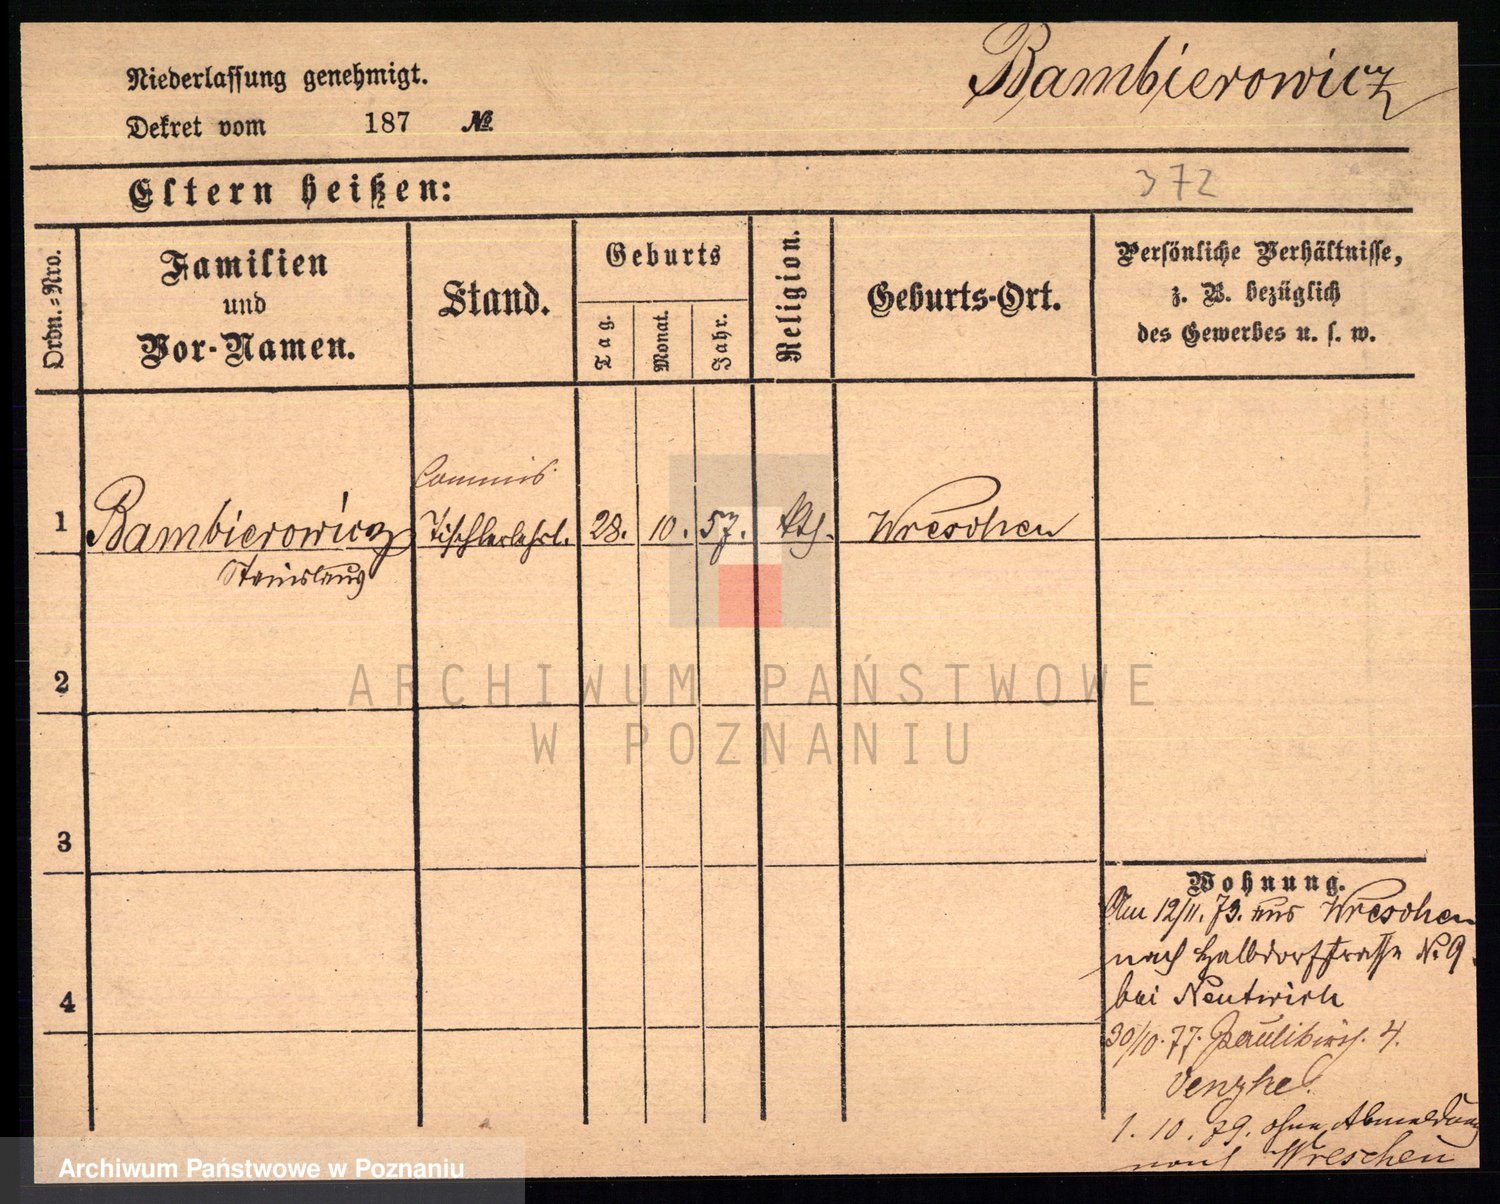 Bambierowicz
Niederlassung genehmigt.
Dekret vom 187 №
372
Eltern heißen:
Ordn.-Nro.
Familien
und
Vor-Namen.
Stand.
Geburts
Tag.
Monat.
Jahr.
Religion.
Geburts-Ort.
Persönliche Verhältnisse,
z. B. bezüglich
des Gewerbes u. s. w.
Commis
1 Bambierowicz Tischlerlehrl. 28. 10. 57. kth. Wreschen
Stanislaus
2
3
4
Wohnung.
Am 12/11. 73. aus Wreschen
nach Halbdorfstrasse No 9.
bei Neutwich
30/10. 77. Paulikirch. 4.
1. 10. 79. ohne Abmeldung
nach Wreschen
ARCHIWUM PAŃSTWOWE
W POZNANIU
Archiwum Państwowe w Poznaniu